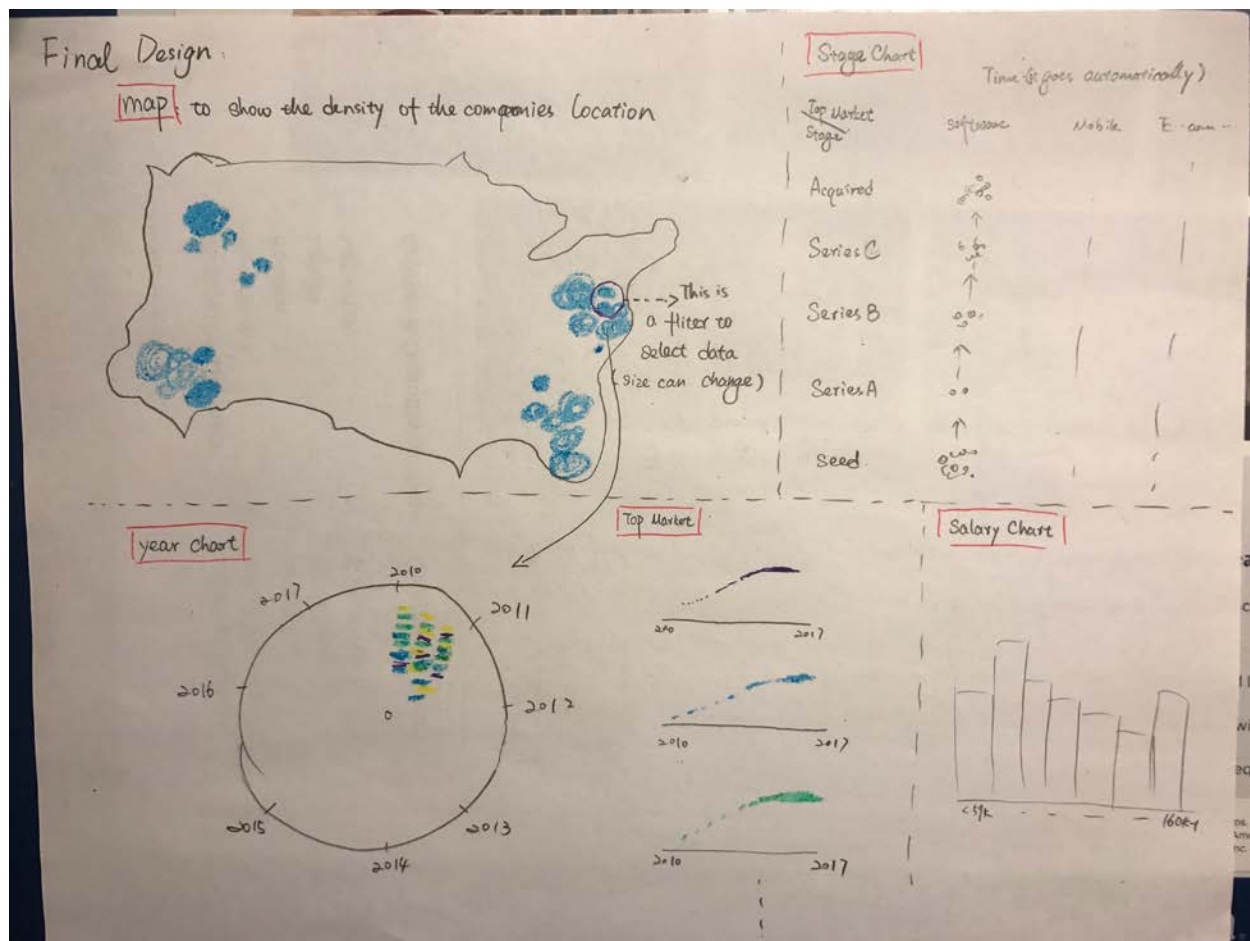 Final Design.
map: to show the density of the companies Location
This is
a fliter to
select data
(size can change)
Stage Chart
Time (goes automatically)
Top Market
Stage
software
Mobile
E-com...
Acquired
Series C
Series B
Series A
Seed
year chart
2010
2011
2012
2013
2014
2015
2016
2017
0
Top Market
2017
2010
2017
2010
2017
Salary Chart
<59k
160k+